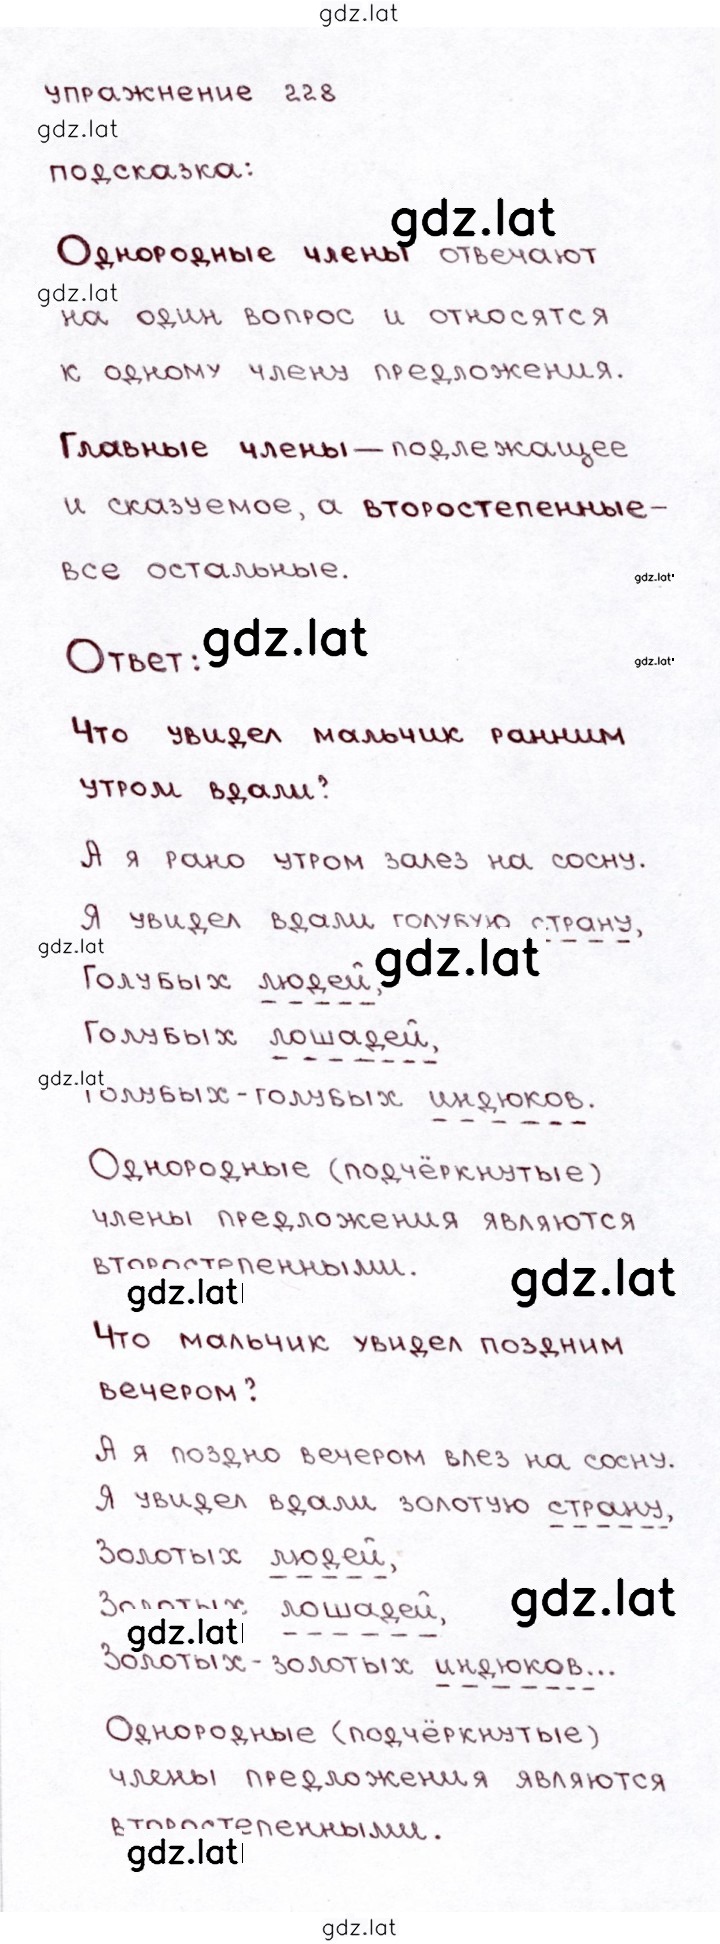 gdz.lat
упражнение 228
gdz.lat
подсказка:
gdz.lat
Однородные члены отвечают
gdz.lat
на один вопрос и относятся
к одному члену предложения.
Главные члены — подлежащее
и сказуемое, а второстепенные –
все остальные.
gdz.lat
Ответ:
gdz.lat
gdz.lat
Что увидел мальчик ранним
утром вдали?
А я рано утром залез на сосну.
Я увидел вдали голубую страну,
gdz.lat
gdz.lat
Голубых людей,
Голубых лошадей,
gdz.lat
Голубых-голубых индюков.
Однородные (подчёркнутые)
члены предложения являются
второстепенными.
gdz.lat
gdz.lat
Что мальчик увидел поздним
вечером?
А я поздно вечером влез на сосну.
Я увидел вдали золотую страну,
Золотых людей,
Золотых лошадей,
gdz.lat
gdz.lat
Золотых-золотых индюков...
Однородные (подчёркнутые)
члены предложения являются
второстепенными.
gdz.lat
gdz.lat